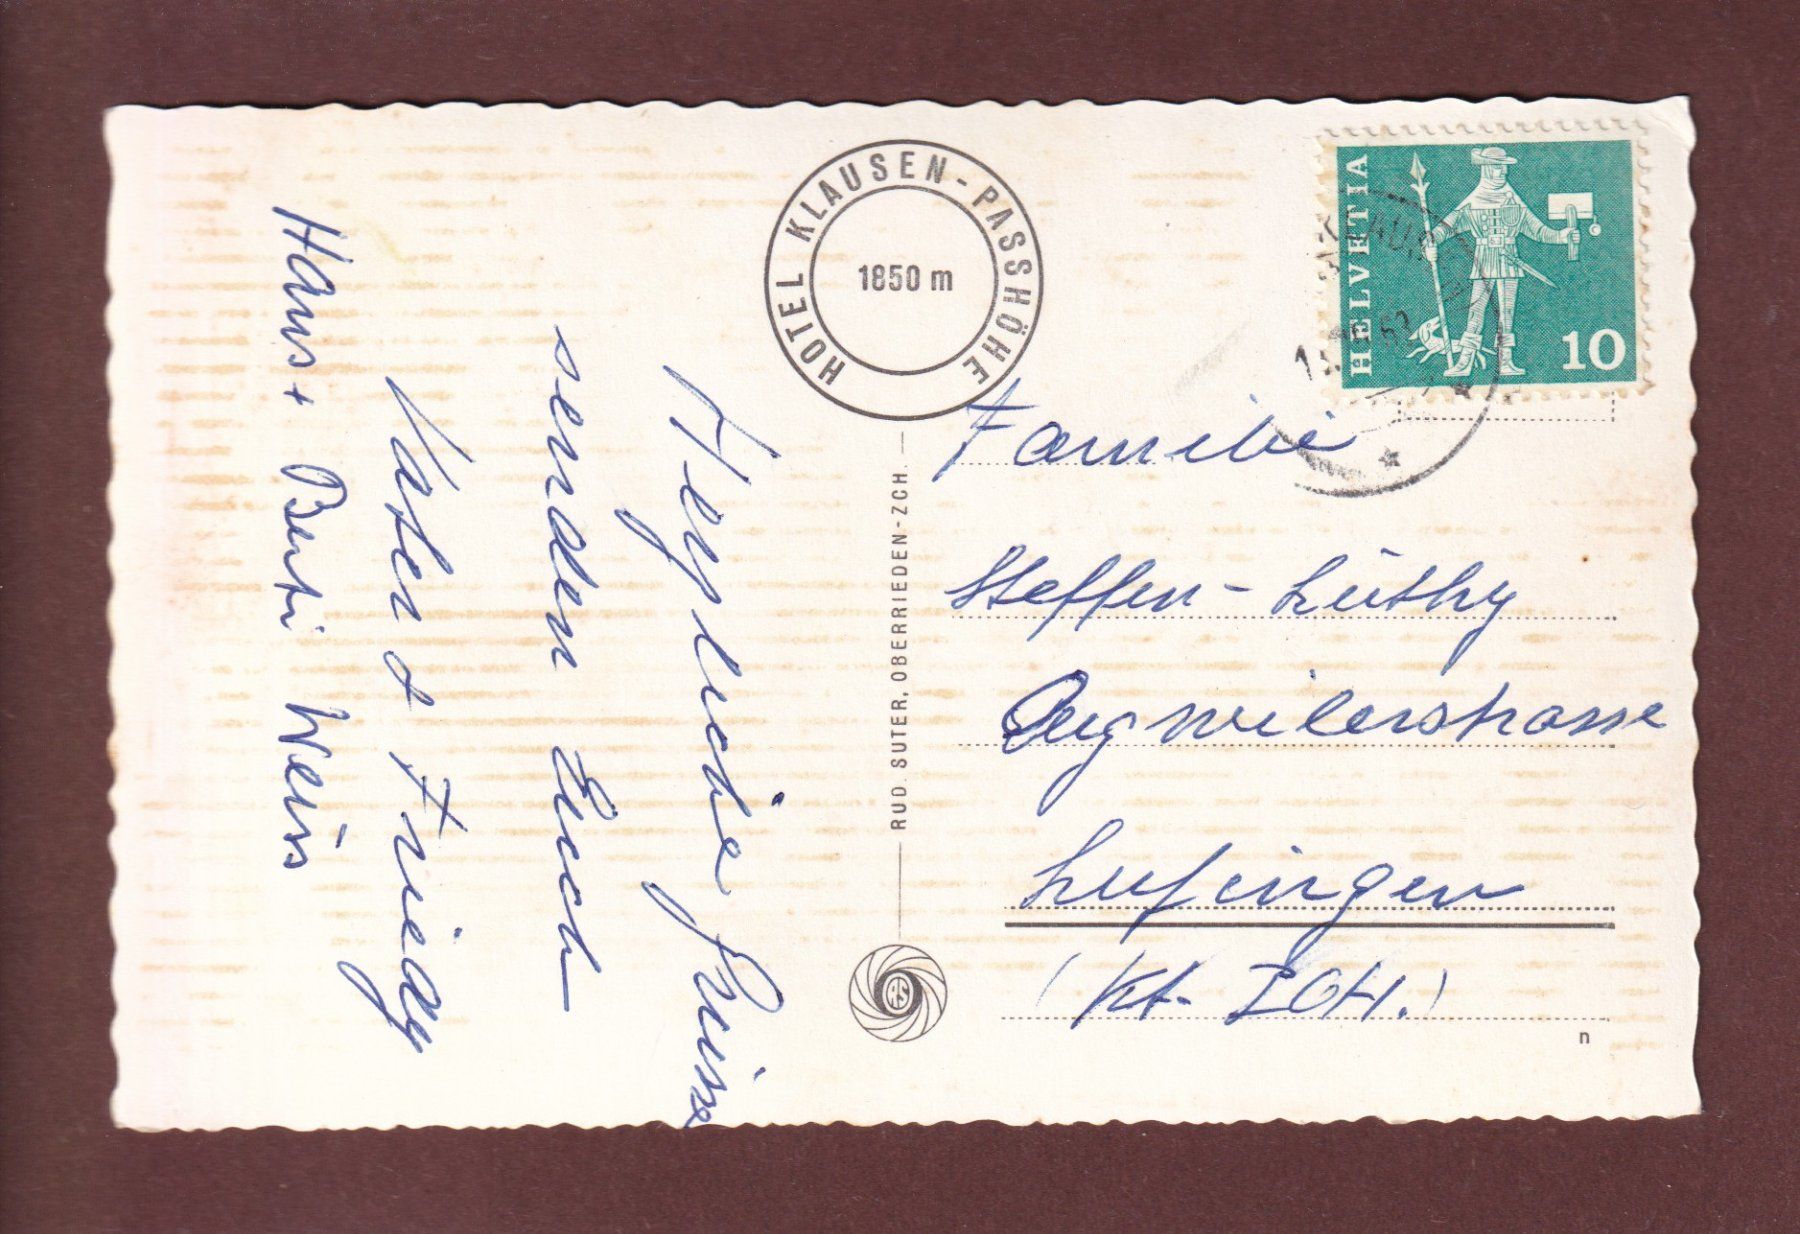 Herzliche Grüsse
senden Euch
Vater & Friedy
Hans + Berti Weiss
HOTEL KLAUSEN-PASSHÖHE
1850 m
RUD. SUTER, OBERRIEDEN-ZCH.
RS
HELVETIA
10
Familie
Steffen - Lüthy
Augwilerstrasse
Lufingen
(Kt. ZCH.)
n